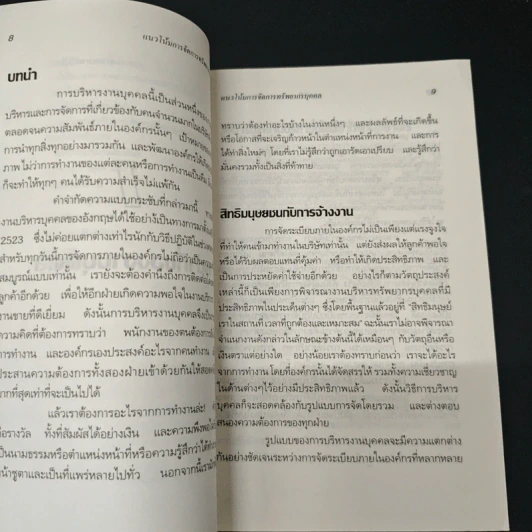 8
แนวโน้มการจัดการทรัพ
บทนำ
การบริหารงานบุคคลนี้เป็นส่วนหนึ่งของ
บริหารและการจัดการที่เกี่ยวข้องกับคนจำนวนมากใน
ตลอดจนความสัมพันธ์ภายในองค์กรนั้นๆ เป้าหมาย
การนำทุกสิ่งทุกอย่างมารวมกัน และพัฒนาองค์กรให้
ภาพ ไม่ว่าการทำงานของแต่ละคนหรือการทำงานเป็นทีม
ก็จะทำให้ทุกๆ คนได้รับความสำเร็จไม่แพ้กัน
คำจำกัดความแบบกระชับที่กล่าวมานี้
งานบริหารบุคคลของอังกฤษได้ใช้อย่างเป็นทางการ
2523 ซึ่งไม่ค่อยแตกต่างเท่าไรนักกับวิธีปฏิบัติใน
สำหรับทุกวันนี้การจัดการภายในองค์กรไม่ถือว่าเป็น
สมบูรณ์แบบเท่านั้น เรายังจะต้องคำนึงถึงการติดต่อ
ลูกค้าอีกด้วย เพื่อให้อีกฝ่ายเกิดความพอใจในงานบริการ
งานขายที่ดีเยี่ยม ดังนั้นการบริหารงานบุคคลจึงเป็น
ความคิดที่ต้องการทราบว่า พนักงานของตนต้องการ
การทำงาน และองค์กรเองประสงค์อะไรจากคนทำงาน
ประสานความต้องการทั้งสองฝ่ายเข้าด้วยกันให้สอด
มากที่สุดเท่าที่จะเป็นไปได้
แล้วเราต้องการอะไรจากการทำงานล่ะ!
คือรางวัล ทั้งที่สัมผัสได้อย่างเงิน และความพึงพอใจ
เป็นนามธรรมหรือตำแหน่งหน้าที่หรือความรู้สึกว่าได้
หน้าชูตาและเป็นที่แพร่หลายไปทั่ว นอกจากนี้เรา
แนวโน้มการจัดการทรัพยากรบุคคล
9
ทราบว่าต้องทำอะไรบ้างในงานหนึ่งๆ และผลลัพธ์ที่จะเกิดขึ้น
หรือโอกาสที่จะเจริญก้าวหน้าในตำแหน่งหน้าที่การงาน และการ
ได้ทำสิ่งใหม่ๆ โดยที่เราไม่รู้สึกว่าถูกเอารัดเอาเปรียบ และรู้สึกว่า
มั่นคงรวมทั้งเป็นสิ่งที่ท้าทาย
สิทธิมนุษยชนกับการจ้างงาน
การจัดระเบียบภายในองค์กรไม่เป็นเพียงแต่แรงจูงใจ
ที่ทำให้คนเข้ามาทำงานในบริษัทเท่านั้น แต่ยังส่งผลให้ลูกค้าพอใจ
หรือได้รับผลตอบแทนที่คุ้มค่า หรือทำให้เกิดประสิทธิภาพ และ
เป็นการประหยัดค่าใช้จ่ายอีกด้วย อย่างไรก็ตามวัตถุประสงค์
เหล่านี้ก็เป็นเพียงการพิจารณางานบริหารทรัพยากรบุคคลที่มี
ประสิทธิภาพในประเด็นต่างๆ ซึ่งโดยพื้นฐานแล้วอยู่ที่ "สิทธิมนุษย์
เราในสถานที่เวลาที่ถูกต้องและเหมาะสม" ฉะนั้นเราไม่อาจพิจารณา
จำแนกงานดังกล่าวในลักษณะข้างต้นนี้ได้เหมือนๆ กับวัตถุอื่นหรือ
เงินตราแต่อย่างใด อย่างน้อยเราต้องทราบก่อนว่า เราจะได้อะไร
จากการทำงาน โดยที่องค์กรนั้นได้จัดสรรให้ รวมทั้งความเชี่ยวชาญ
ในด้านต่างๆไว้อย่างมีประสิทธิภาพแล้ว ดังนั้นวิธีการบริหาร
บุคคลก็จะสอดคล้องกับรูปแบบการจัดโดยรวม และต่างตอบ
สนองความต้องการของทุกฝ่าย
รูปแบบของการบริหารงานบุคคลจะมีความแตกต่าง
กันอย่างชัดเจนระหว่างการจัดระเบียบภายในองค์กรที่หลากหลาย